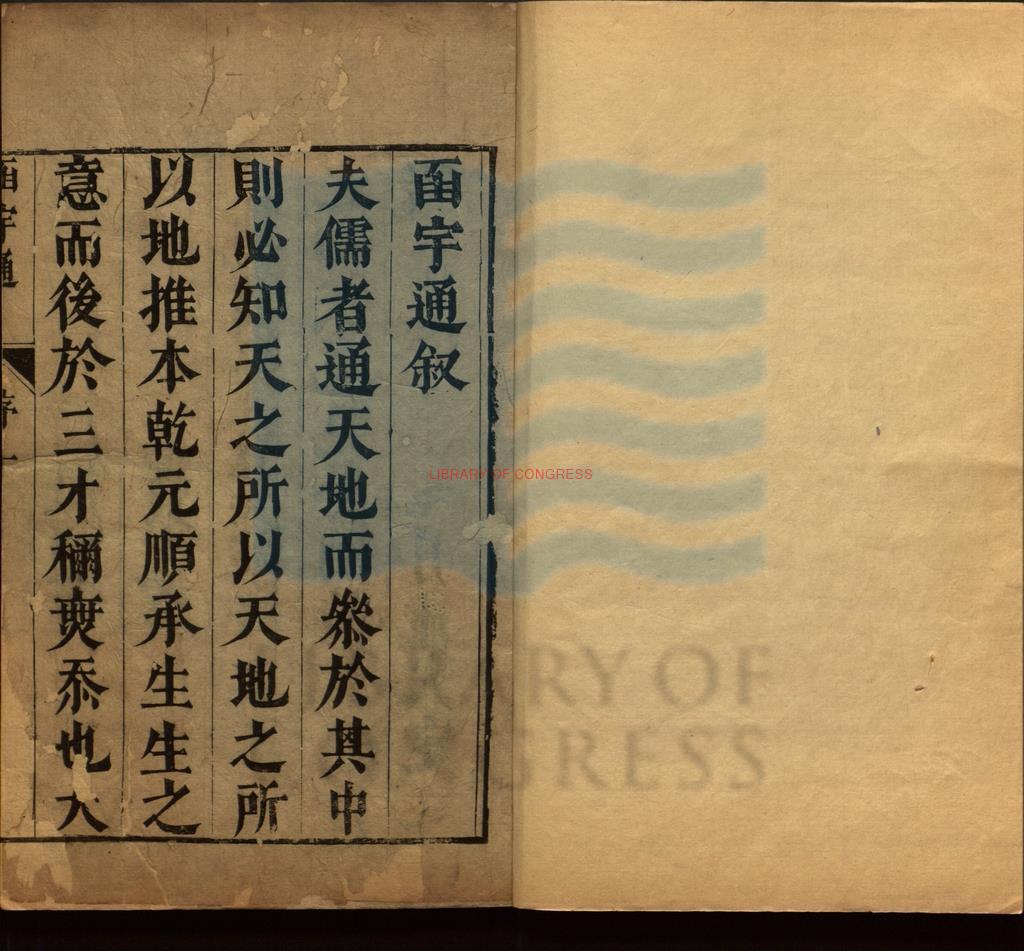 函宇通叙
夫儒者通天地而叅於其中
則必知天之所以天地之所
以地推本乾元順承生生之
意而後於三才稱无忝也大
函宇通
序一
LIBRARY OF CONGRESS
RY OF
GRESS